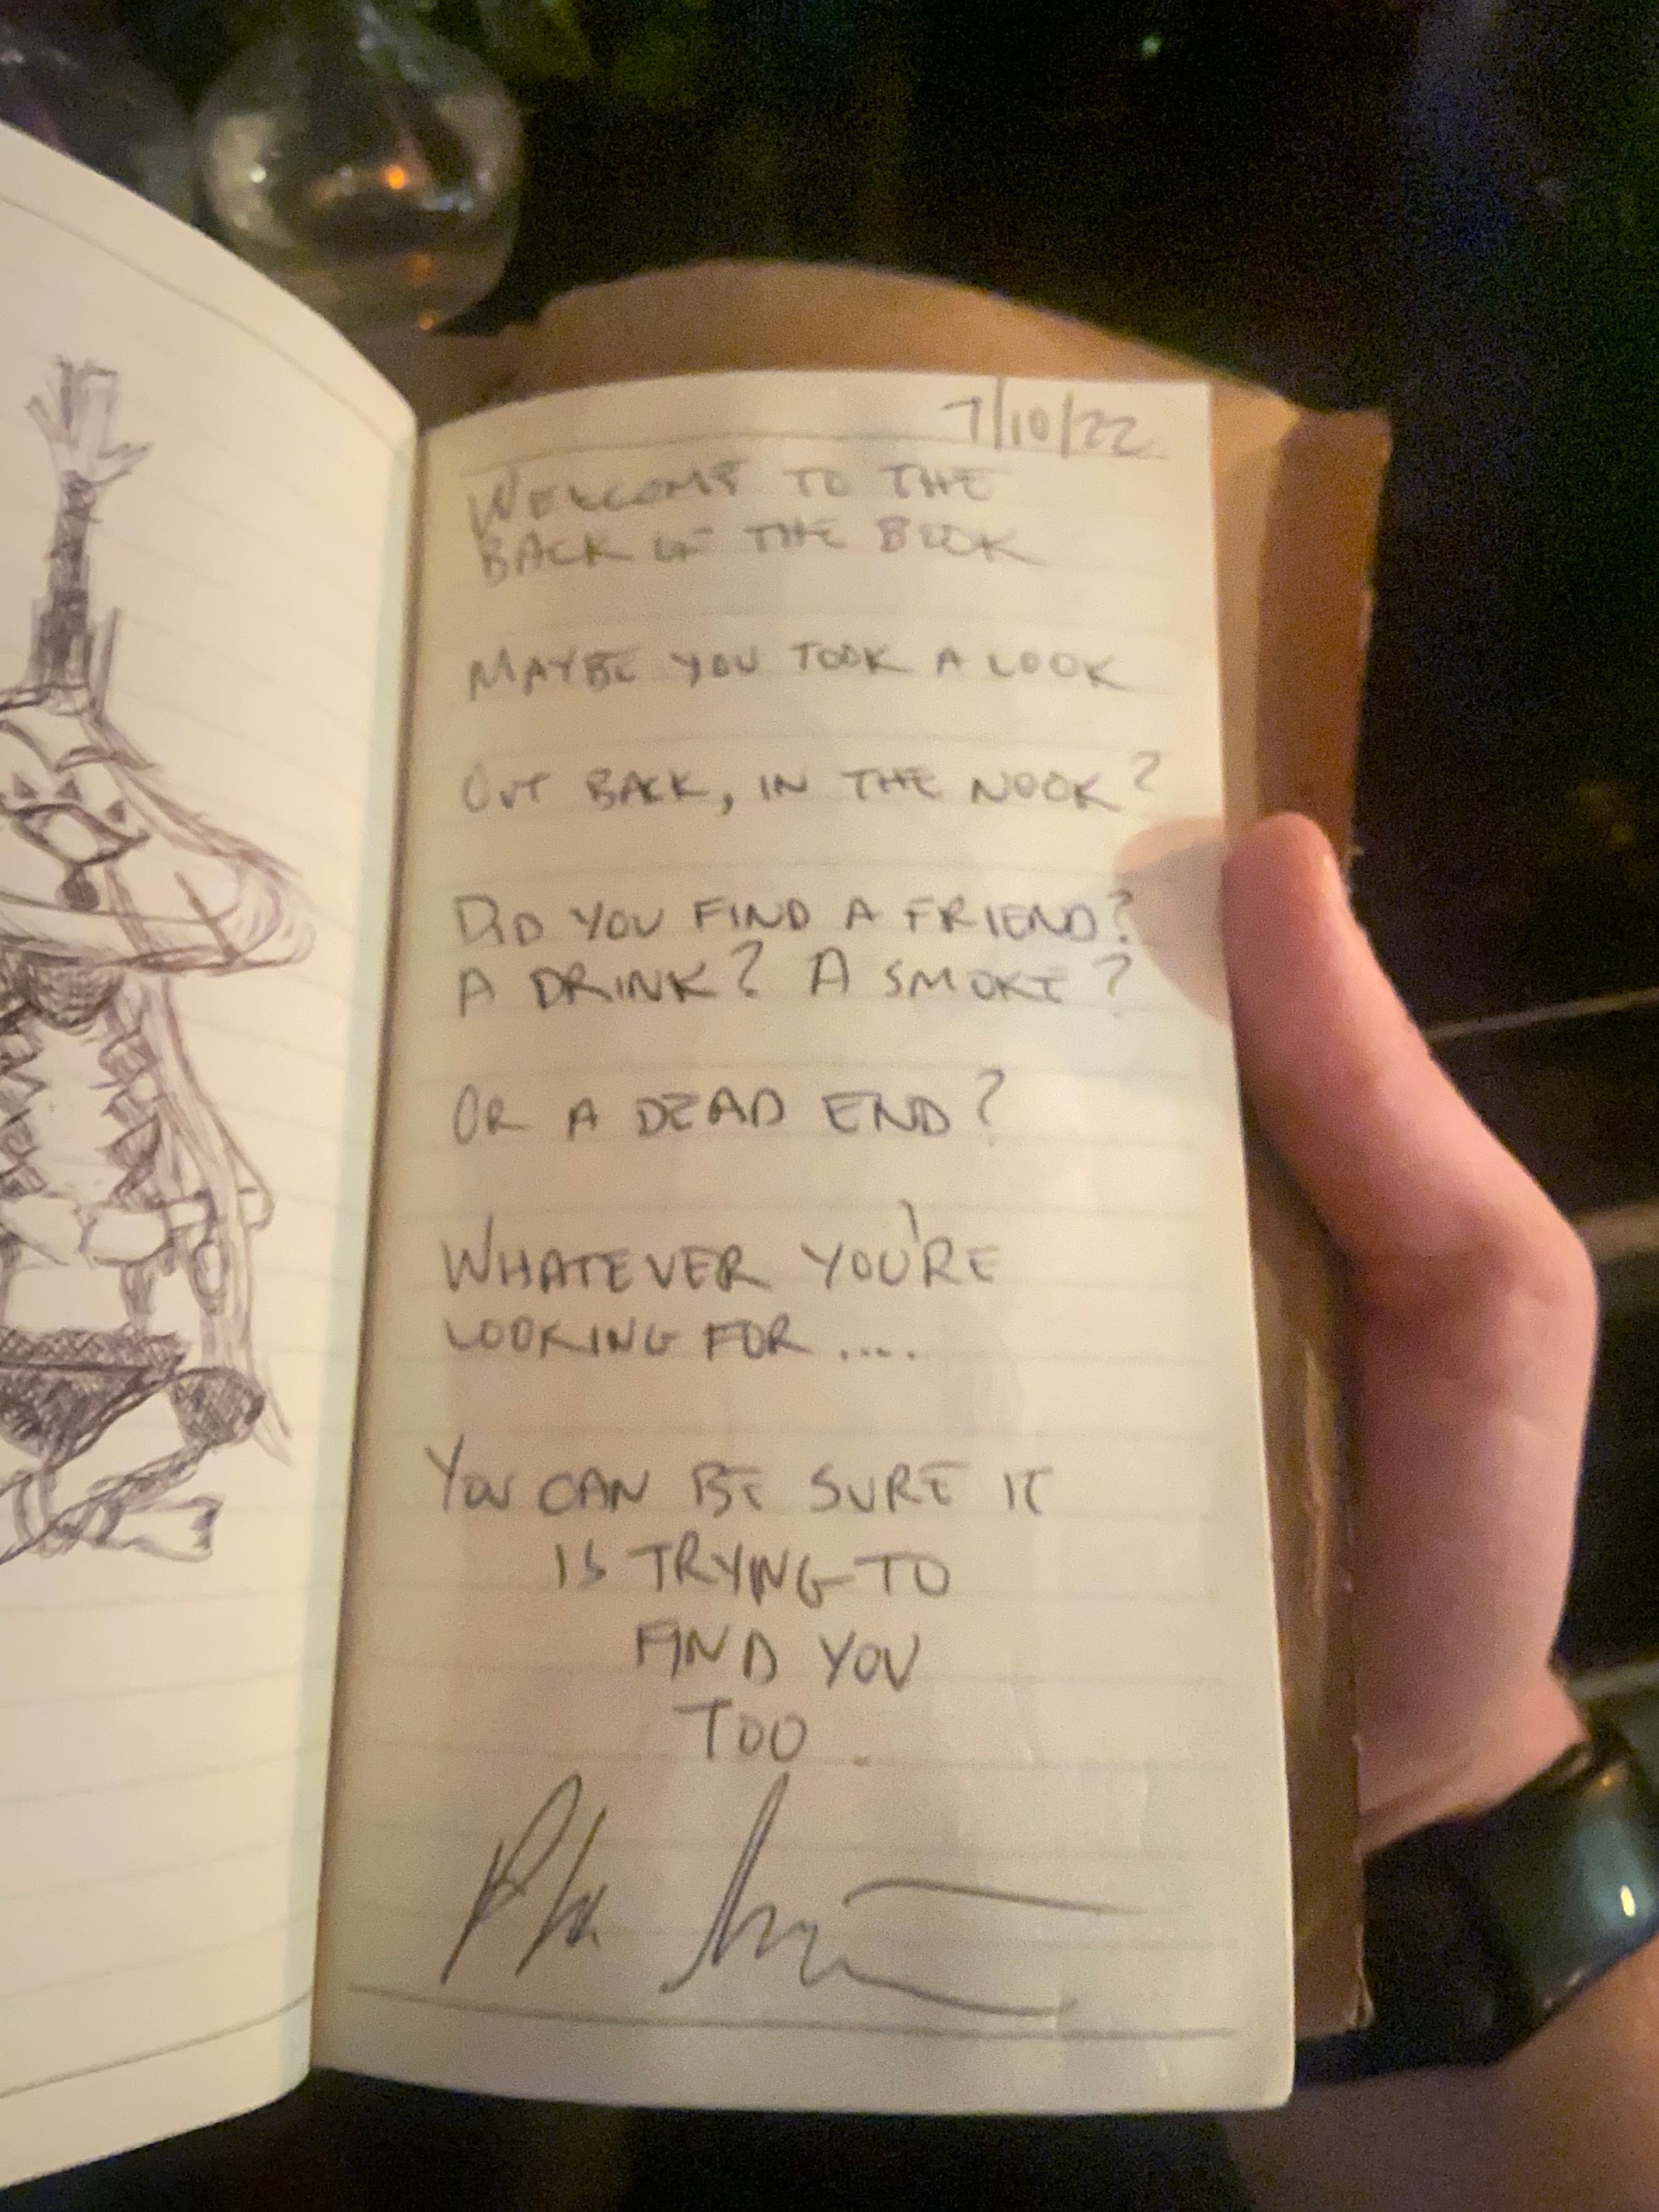 7/10/22
WELCOME TO THE
BACK OF THE BOOK
MAYBE YOU TOOK A LOOK
OUT BACK, IN THE NOOK?
DID YOU FIND A FRIEND?
A DRINK? A SMOKE?
OR A DEAD END?
WHATEVER YOU'RE
LOOKING FOR ....
YOU CAN BE SURE IT
IS TRYING TO
FIND YOU
TOO.